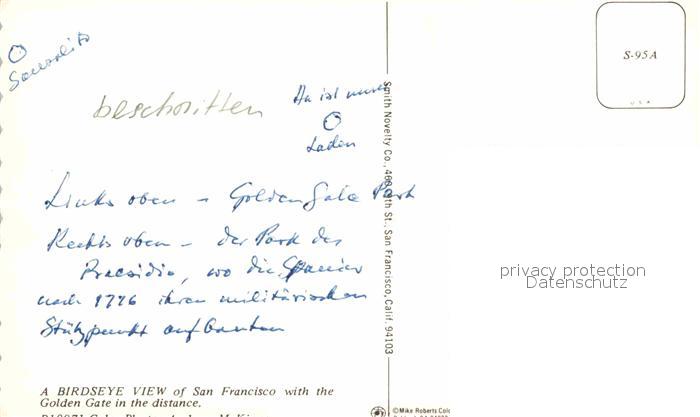 S-95A
USA
Sausalito
beschritten
Da ist unser
Laden
Links oben - Golden Gate Park
Rechts oben - der Park des
Praesidio, wo die Spanier
nach 1776 ihren militärischen
Stützpunkt aufbauten
Smith Novelty Co., 460 9th St., San Francisco, Calif. 94103
privacy protection
Datenschutz
A BIRDSEYE VIEW of San Francisco with the
Golden Gate in the distance.
©Mike Roberts